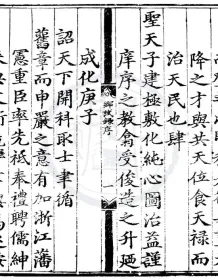 降之才與共天位食天祿而
治天民也肆
聖天子建極敷化純心圖治益謹
庠序之教禽受俊造之升廼
成化庚子
詔天下開科取士聿循
舊章而申嚴之意有加浙江藩
憲重臣率先祗奉禮聘儒紳